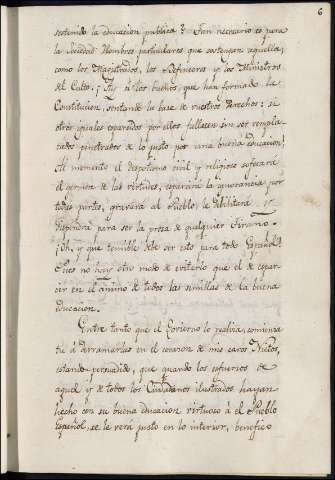 6
sostenido la educacion publica? Tan necesario es para
la Sociedad Hombres particulares que sostengan aquella,
como los Magistrados, los Defensores y los Ministros
del Culto. ¡Ay si los buenos que han formado la
Constitucion, sentando la base de vuestros derechos: si
otros iguales esparados por ellos fallecen sin ser rempla-
zados penetrados de lo justo por una buena educacion!
Al momento el despotismo civil y religioso sofocará
el germen de las virtudes, esparcirá la ignorancia por
todas partes, gravará al Pueblo, le debilitara y
dispondra para ser la presa de qualquier Tirano.
¡Oh, y que temible debe ser esto para todo Español!
Pues no hay otro modo de evitarlo que el de espar-
cir en el animo de todos las semillas de la buena
educacion.
Entre tanto que el Govierno lo realiza, comienza
tu á derramarlas en el corazon de mis caros Nietos,
estando persuadido, que quando los esfuerzos de
aquel y de todos los Ciudadanos ilustrados hayan
hecho con su buena educacion virtuoso á el Pueblo
Español, se le verá justo en lo interior, benefico